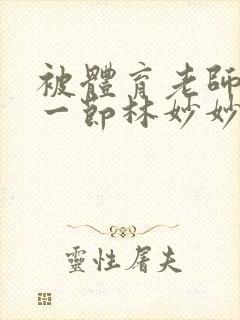 被體育老師
一節林妙妙
靈性屠夫